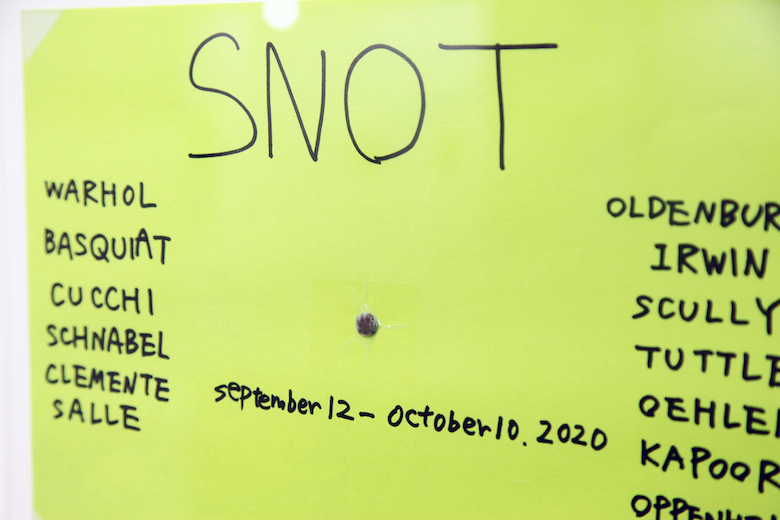 SNOT
WARHOL
BASQUIAT
CUCCHI
SCHNABEL
CLEMENTE
SALLE
september 12 – October 10. 2020
OLDENBUR
IRWIN
SCULLY
TUTTLE
OEHLE
KAPOOR
OPPENHE